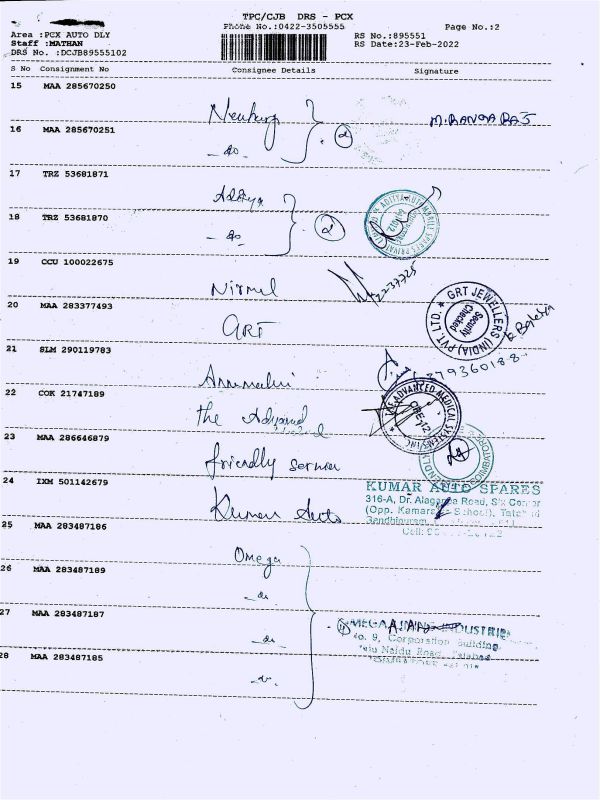 TPC/CJB DRS - PCX
Phone No.:0422-3505555 Page No.:2
Area :PCX AUTO DLY
Staff :MATHAN
DRS No. :DCJB89555102
RS No.:895551
RS Date:23-Feb-2022
S No Consignment No Consignee Details Signature
15 MAA 285670250
M. RANGARAJ
16 MAA 285670251
- do -
17 TRZ 53681871
Aditya
18 TRZ 53681870
- do -
19 CCU 100022675
Nirmal
20 MAA 283377493
GRT
GRT JEWELLERS (INDIA) PVT. LTD.
Security
Checked
21 SLM 290119783
22 COK 21747189
the
ADVANCED MEDICAL SYSTEMS
23 MAA 286646879
friendly service
24 IXM 501142679
Kumar Auto
KUMAR AUTO SPARES
316-A, Dr. Alagappa Road, Six Corner
(Opp. Kamaraj School), Tatabad
Gandhipuram,
Cell:
25 MAA 283487186
Omega
26 MAA 283487189
- do -
27 MAA 283487187
- do -
No. 9, Corporation Building
Road, Tatabad
28 MAA 283487185
- do -